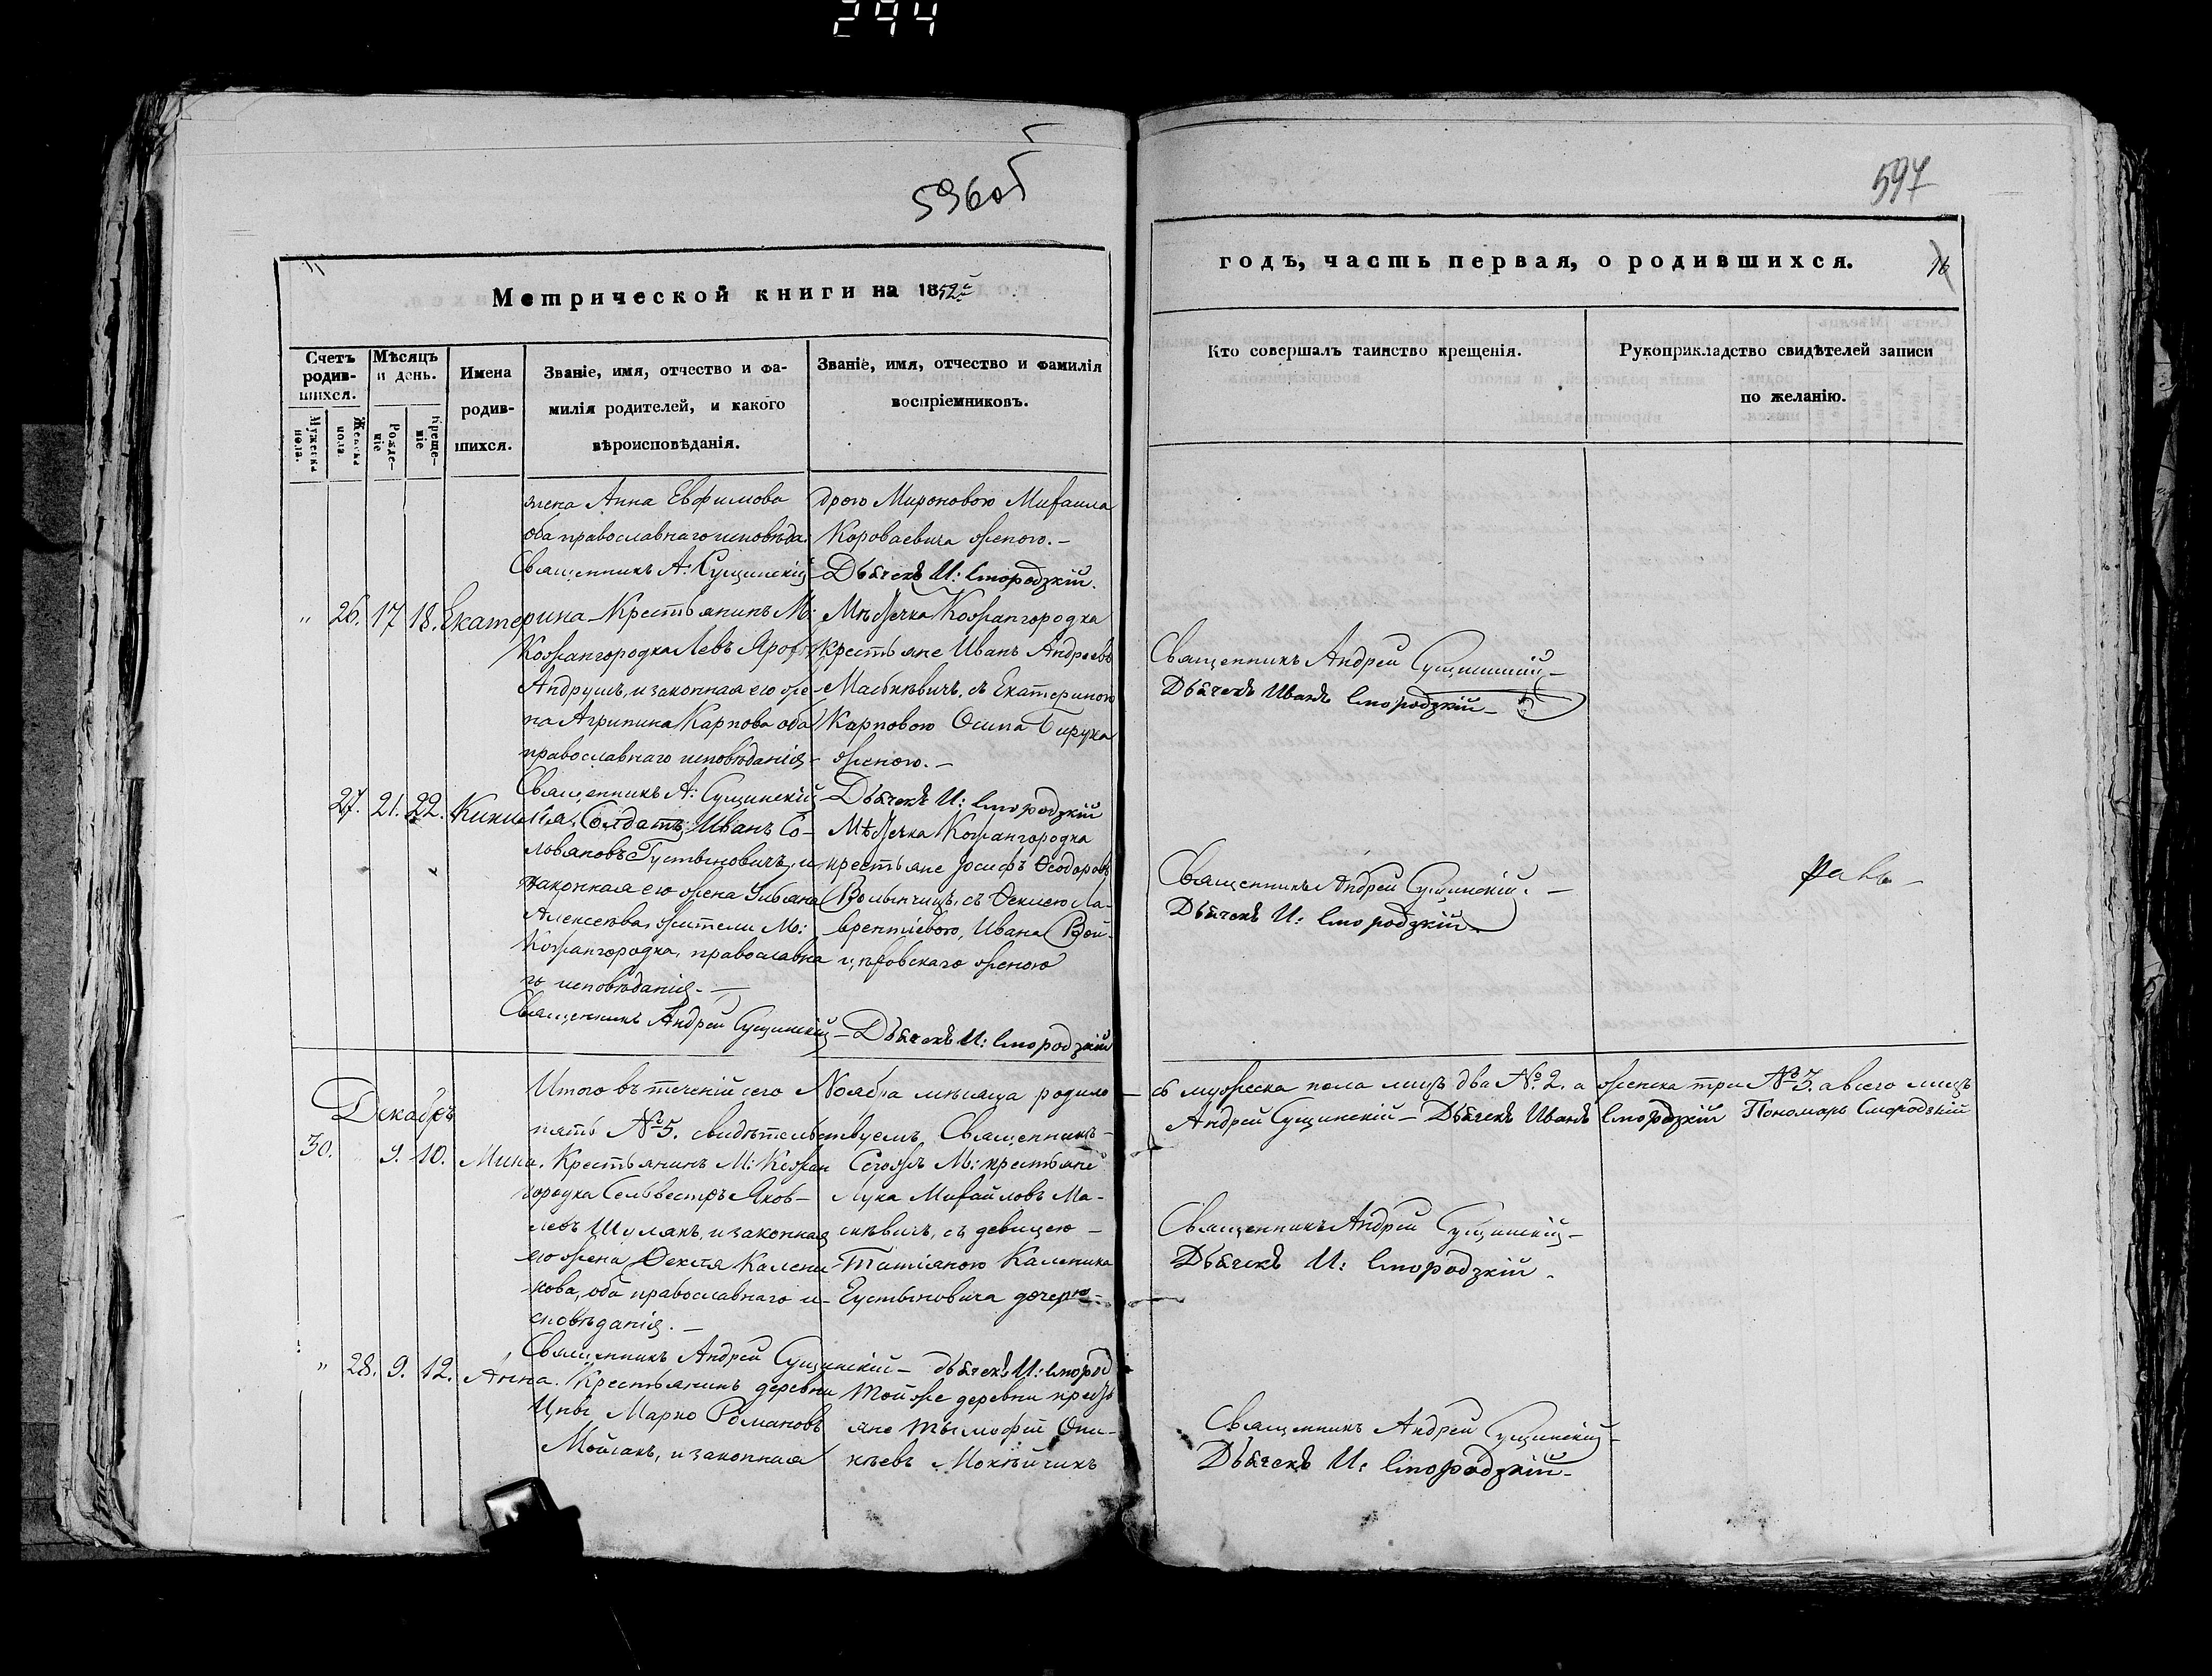 294
596об
597
Метрической книги на 1852й
годъ, часть первая, о родившихся.
16
Счетъ родившихся.
Мѣсяцъ и день.
Имена родившихся.
Званіе, имя, отчество и фамилія родителей, и какого вѣроисповѣданія.
Званіе, имя, отчество и фамилія воспріемниковъ.
Кто совершалъ таинство крещенія.
Рукоприкладство свидѣтелей записи по желанію.
Мужеска пола.
Женска пола.
Рожденіе
Крещеніе
жена Анна Евфимова
оба православнаго исповѣда.
Священникъ А: Сущинскій
дрою Мироновою Михаила
Короваевича женою.-
Дьячекъ И: Смородзкій.
" 26. 17 18. Екатерина
Крестьянинъ М:
Кожангородка Левъ
Андрушъ, и законная его же-
на Агрипина Карпова оба
православнаго исповѣданія-
Священникъ А: Сущинскій
Мѣстечка Кожангородка
крестьяне Иванъ Андреевъ
съ Екатериною
Карповою Осипа
женою.-
Дьячекъ И: Смородзкій
Священникъ Андрей Сущинскій-
Дьячекъ Иванъ Смородзкій-
27. 21. 22.
Солдатъ Иванъ Со-
и
законная его жена Ульяна
Алексѣева, жители М:
Кожангородка, православна
го исповѣданія.-
Священникъ Андрей Сущинскій-
Мѣстечка Кожангородка
крестьяне Іосифъ Ѳеодоровъ
Волынчицъ, съ Ѳеклею Ла-
врентіевою, Ивана Вой-
цѣховскаго женою
Дьячекъ И: Смородзкій
Священникъ Андрей Сущинскій.-
Дьячекъ И: Смородзкій.
Итого въ теченій сего Ноября мѣсяца родило-
сь мужеска пола лицъ два №2. а женска три №3. а всего лицъ
пять №5. свидѣтельствуемъ, Священникъ-
Андрей Сущинскій- Дьячекъ Иванъ Смородзкій Пономарь Смородзкій
Декабрь
30. 9. 10. Мина.
Крестьянинъ М: Кожан
городка Сельвестръ Яков-
левъ Шулякъ, и законная
его жена Ѳекля Калени
кова, оба православнаго и-
сповѣданія.-
Священникъ Андрей Сущинскій-
Тогожъ М: крестьяне
Лука Михайловъ Ма-
съ девицею-
Татіяною Каленика
дочерю-
дьячекъ И: Смород
Священникъ Андрей Сущинскій-
Дьячекъ И: Смородзкій.
" 28. 9. 12. Анна.
Крестьянинъ деревни
Цны Марко Романовъ
и законная
Той же деревни кресть
яне Тымофій Они-
Священникъ Андрей Сущинскій-
Дьячекъ И: Смородзкій-